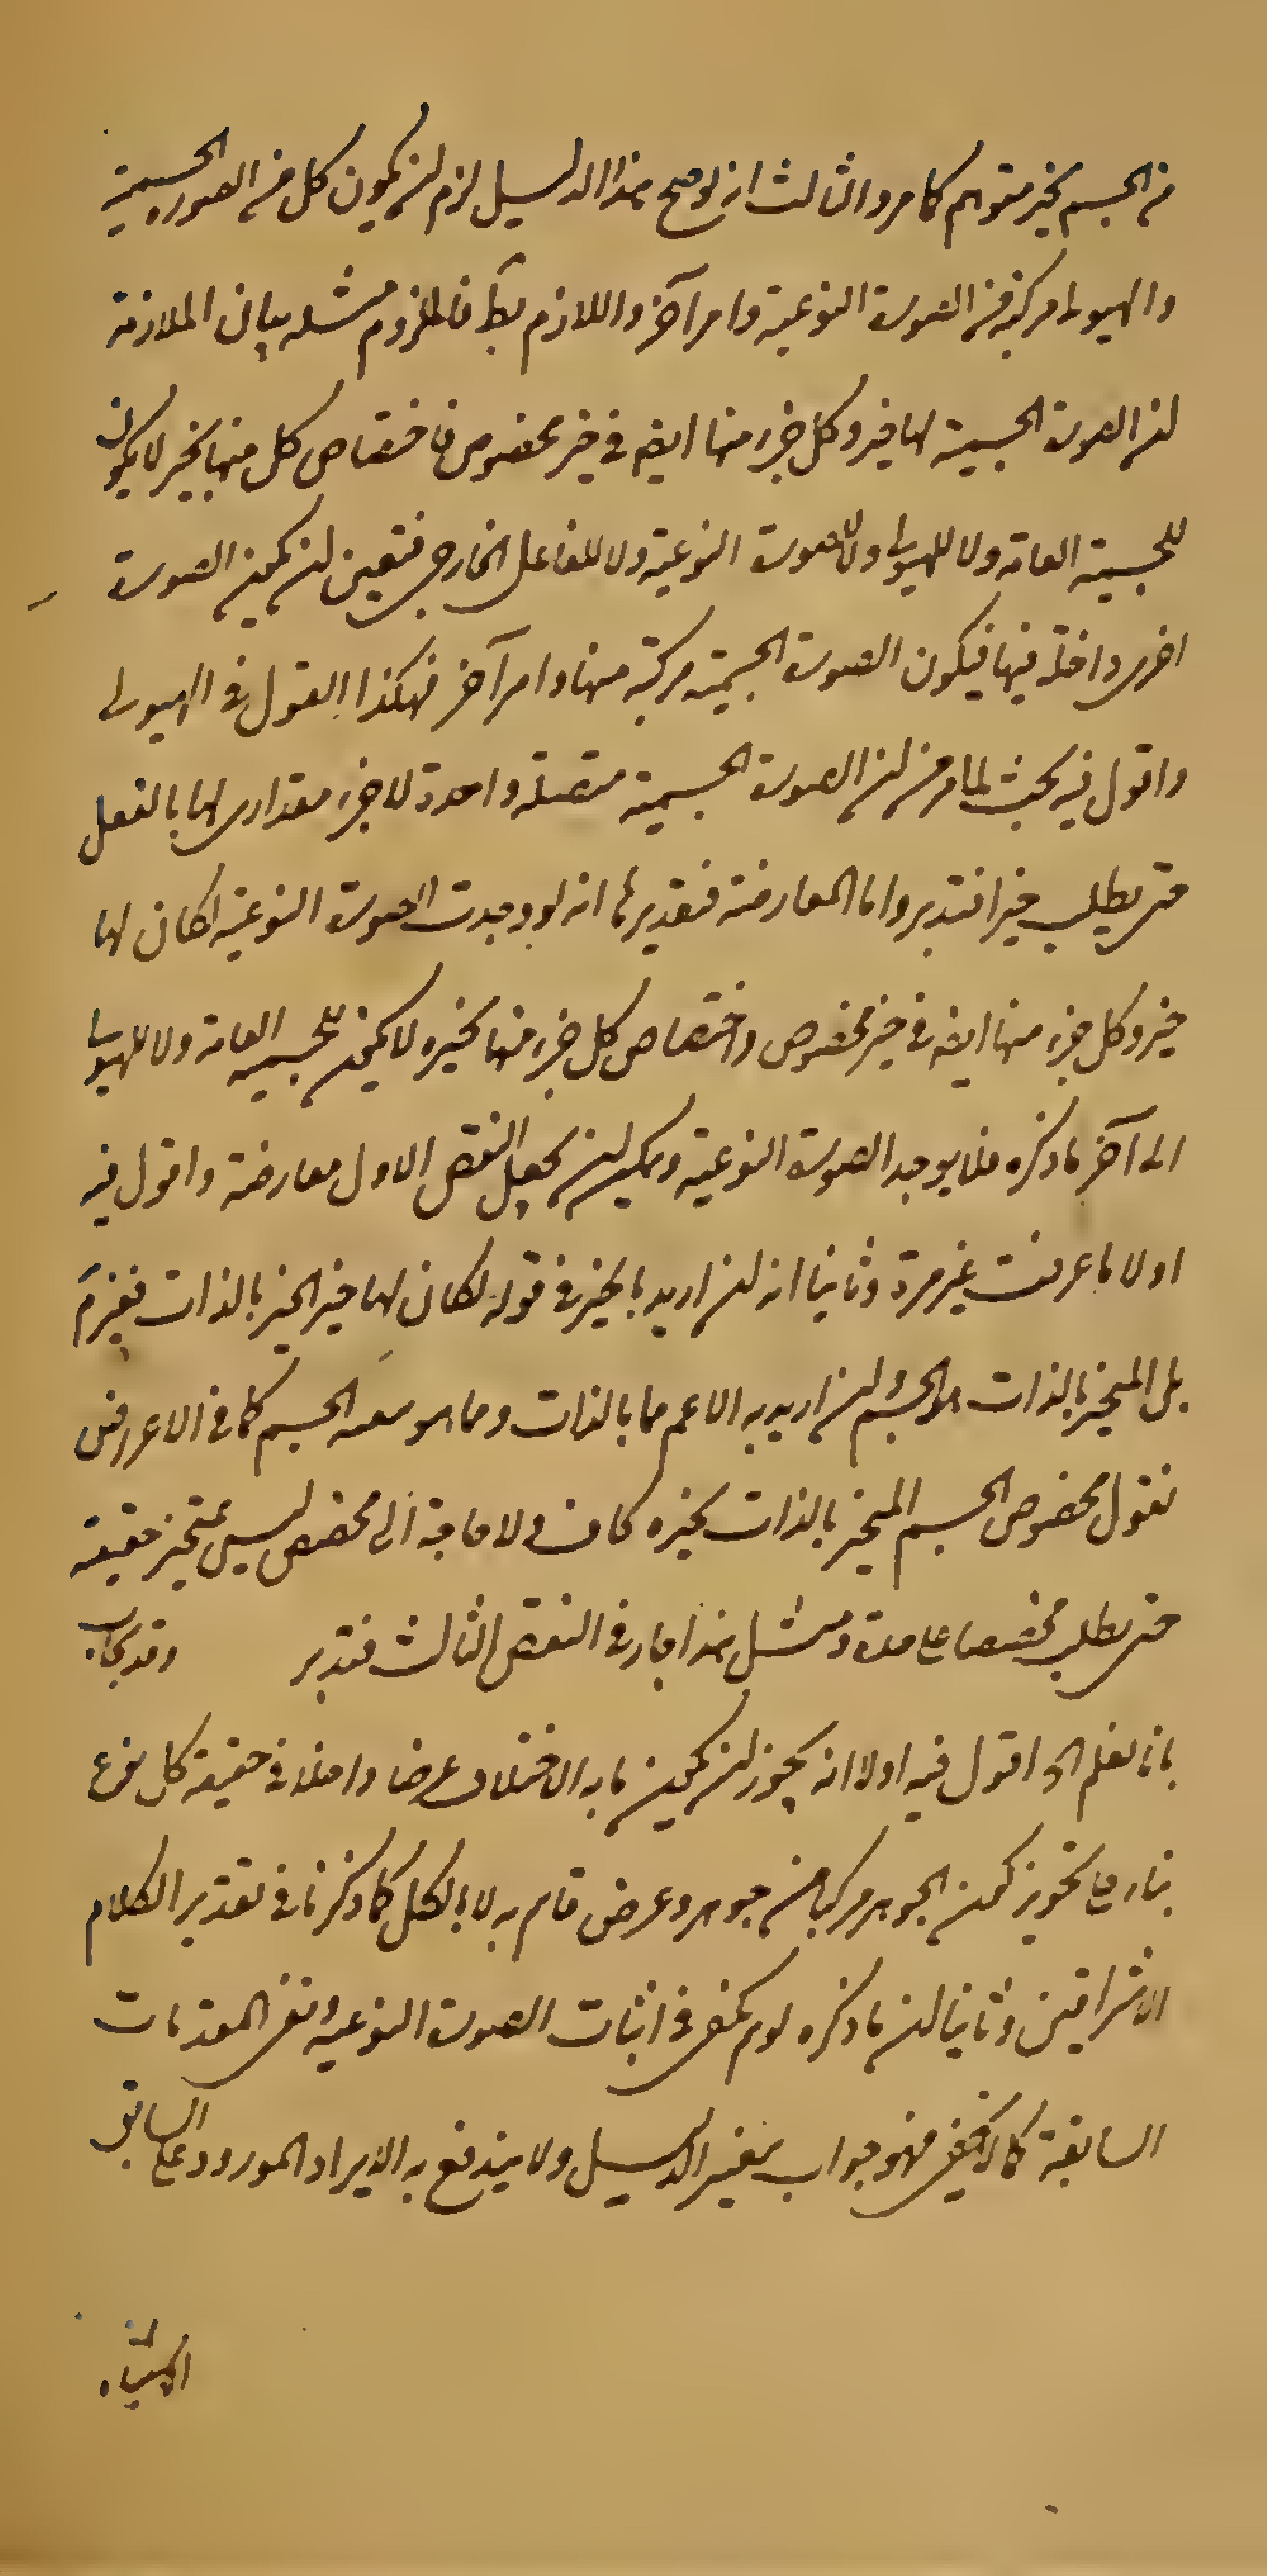 من الجسم بحيز متوهم كما مر والثالث انه لو صح هذا الدليل لزم ان يكون كل من الصورة الجسمية
والهيولى مركبة من الصورة النوعية وامر آخر واللازم بط فالملزوم مثله بيان الملازمة
ان الصورة الجسمية لها حيز وكل جزء منها ايضا في حيز مخصوص فاختصاص كل منها بحيز لا يكون
للجسمية العامة ولا للهيولى ولا للصورة النوعية ولا للفاعل الخارجي فتعين ان يكون الصورة
اخرى داخلة فيها فيكون الصورة الجسمية مركبة منها وامر آخر فهكذا القول في الهيولى
واقول فيه بحث لما مر من ان الصورة الجسمية متصلة واحدة لا جزء مقداري لها بالفعل
حتى يطلب حيزا فتدبر واما المعارضة فتقديرها انه لو وجدت الصورة النوعية لكان لها
حيز وكل جزء منها ايضا في حيز مخصوص واختصاص كل جزء منها بحيزه لا يكون للجسمية العامة ولا للهيولى
الى آخر ما ذكره فلا يوجد الصورة النوعية ويمكن ان يجعل النقض الاول معارضة واقول فيه
اولا ما عرفت غير مرة وثانيا انه ان اريد بالحيز في قوله لكان لها حيز الحيز بالذات فغير م
بل المتحيز بالذات هو الجسم وان اريد به الاعم مما بالذات ومما هو معه الجسم كما في الاعراض
نقول مخصوص الجسم المتحيز بالذات بحيزه كاف ولا حاجة الى مخصص ليس بمتحيز حقيقة
حتى يطلب مخصصا على حدة ومثل هذا جار في النقض الثالث فتدبر وقد يجاب
بانا نعلم الخ اقول فيه اولا انه يجوز ان يكون ما به الاختلاف عرضا داخلا في حقيقة كل نوع
بناء على تجويز كون الجوهر مركبا من جوهر وعرض قائم به لا بالكل كما ذكرنا في تقدير الكلام
الاشراقيين وثانيا ان ما ذكره لو تم يكفي في اثبات الصورة النوعية ونفي المقدمات
السابقة كما لا يخفى فهو جواب بتغيير الدليل ولا يندفع به الايراد المورود على السابق